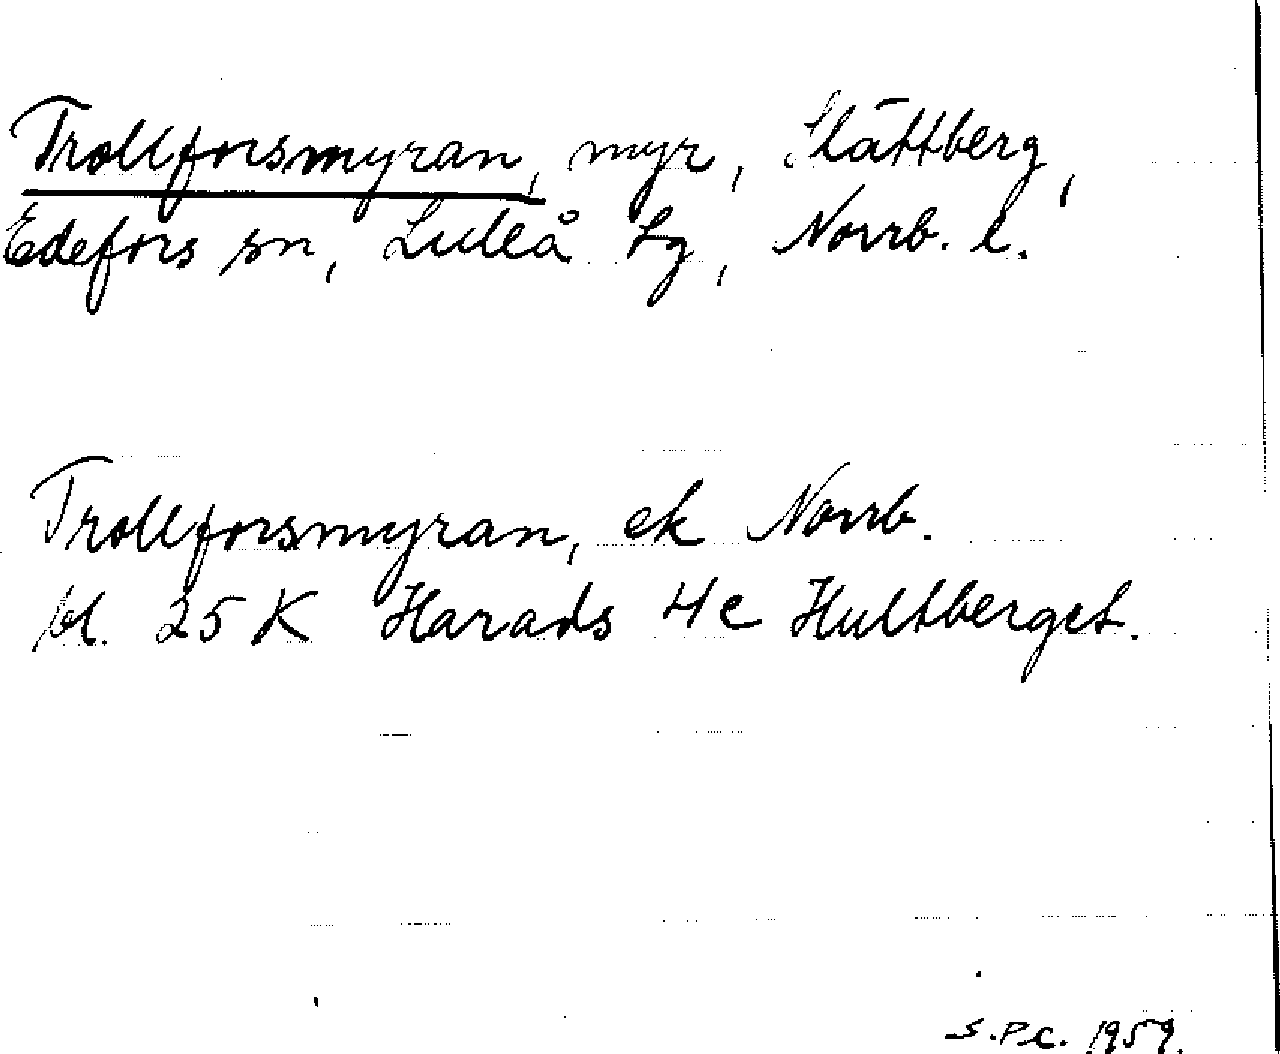 Trollforsmyran, myr, Slättberg,
Edefors sn, Luleå tg, Norrb. l.
Trollforsmyran, ek Norrb.
bl. 25 K Harads 4c Hultberget.
S.P.C. 1959.